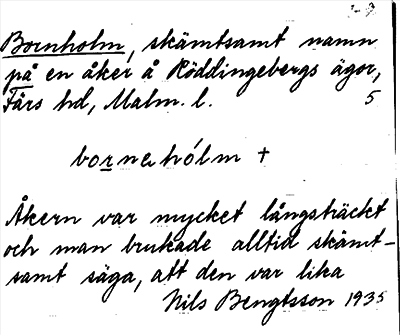 Bornholm, skämtsamt namn
på en åker å Röddingebergs ägor,
Färs hd, Malm. l. 5
bornahólm +
Åkern var mycket långsträckt
och man brukade alltid skämt-
samt säga, att den var lika
Nils Bengtsson 1935